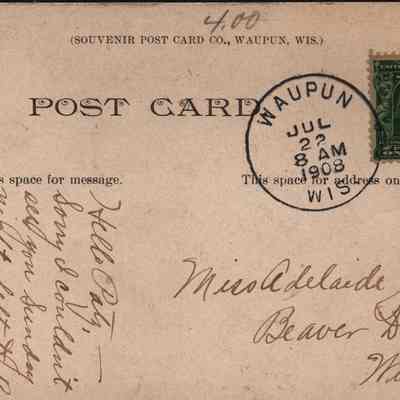 4.00
(SOUVENIR POST CARD CO., WAUPUN, WIS.)
POST CARD
WAUPUN
JUL
22
8 AM
1908
WIS
s space for message.
This space for address on
Hello Patz,—
Sorry I couldn't
see you Sunday
Miss Adelaide
Beaver D
Wi